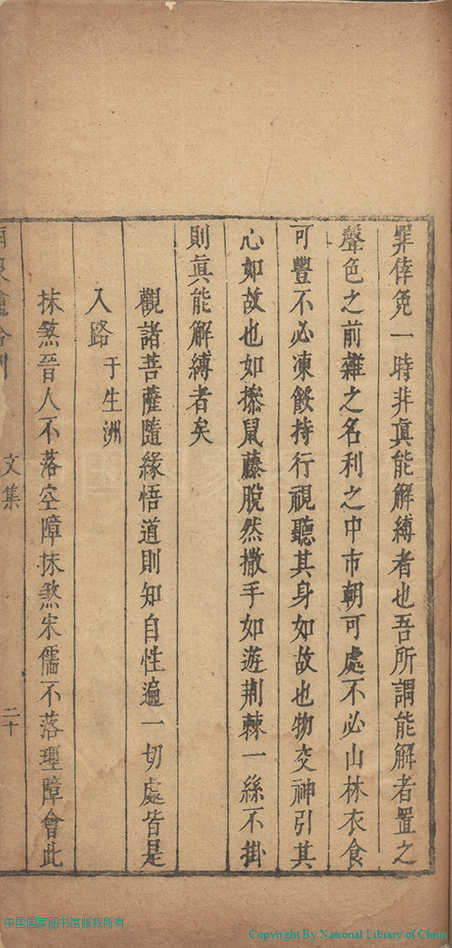 罪倖免一時非眞能解縛者也吾所謂能解者置之
聲色之前雜之名利之中市朝可處不必山林衣食
可豐不必凍餒持行視聽其身如故也物交神引其
心如故也如摻鼠藤脫然撒手如遊荆棘一絲不掛
則眞能解縛者矣
觀諸菩薩隨緣悟道則知自性遍一切處皆是
入路 于生洲
抹煞晉人不落空障抹煞宋儒不落理障會此
文集 二十
中国国家图书馆版权所有
Copyright By National Library of China